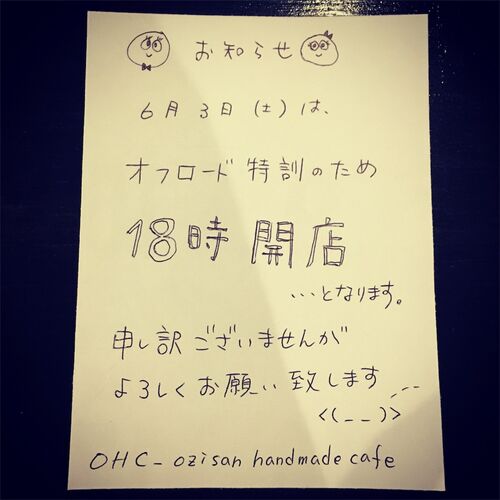 お知らせ
6月3日(土)は、
オフロード特訓のため
18時開店
…となります。
申し訳ございませんが
よろしくお願い致します
<(_ _)>
OHC_ozisan handmade cafe